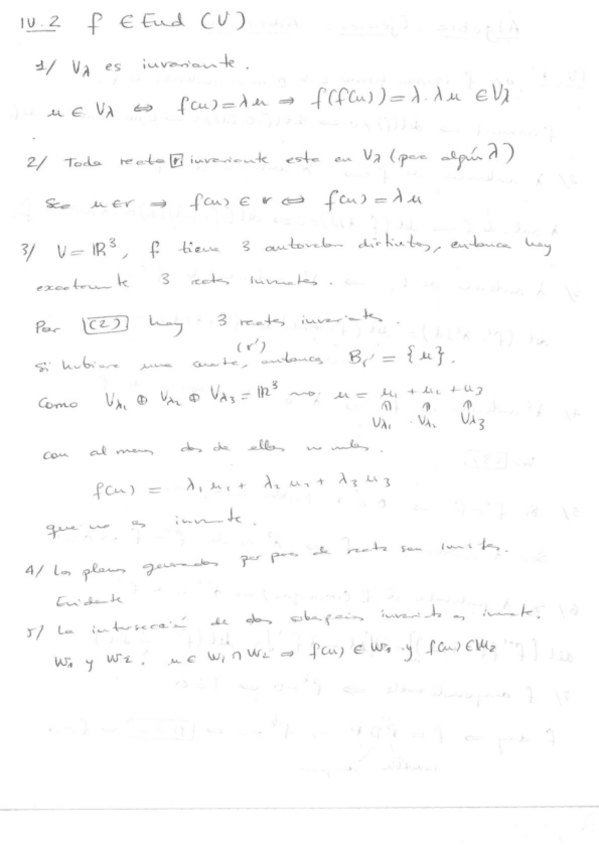 IV.2 f ∈ End (V)
1/ Vλ es invariante.
u ∈ Vλ ⇔ f(u) = λu ⇒ f(f(u)) = λ.λu ∈ Vλ
2/ Toda recta r invariante esta en Vλ (para algún λ)
Sea u∈r ⇒ f(u) ∈ r ⇔ f(u) = λu
3/ V = ℝ³, f tiene 3 autovalores distintos, entonces hay
exactamente 3 rectas invariantes.
Por (2) hay 3 rectas invariantes.
Si hubiera una cuarta, (r') entonces Br' = {u}.
Como Vλ1 ⊕ Vλ2 ⊕ Vλ3 = ℝ³ ⇝ u = u1 + u2 + u3
Vλ1 Vλ2 Vλ3
con al menos dos de ellos no nulos.
f(u) = λ1 u1 + λ2 u2 + λ3 u3
que no es invariante.
4/ Los planos generados por pares de rectas son invariantes.
Evidente
5/ La intersección de dos subespacios invariantes es invariante.
W1 y W2. u ∈ W1 ∩ W2 ⇒ f(u) ∈ W1 y f(u) ∈ W2